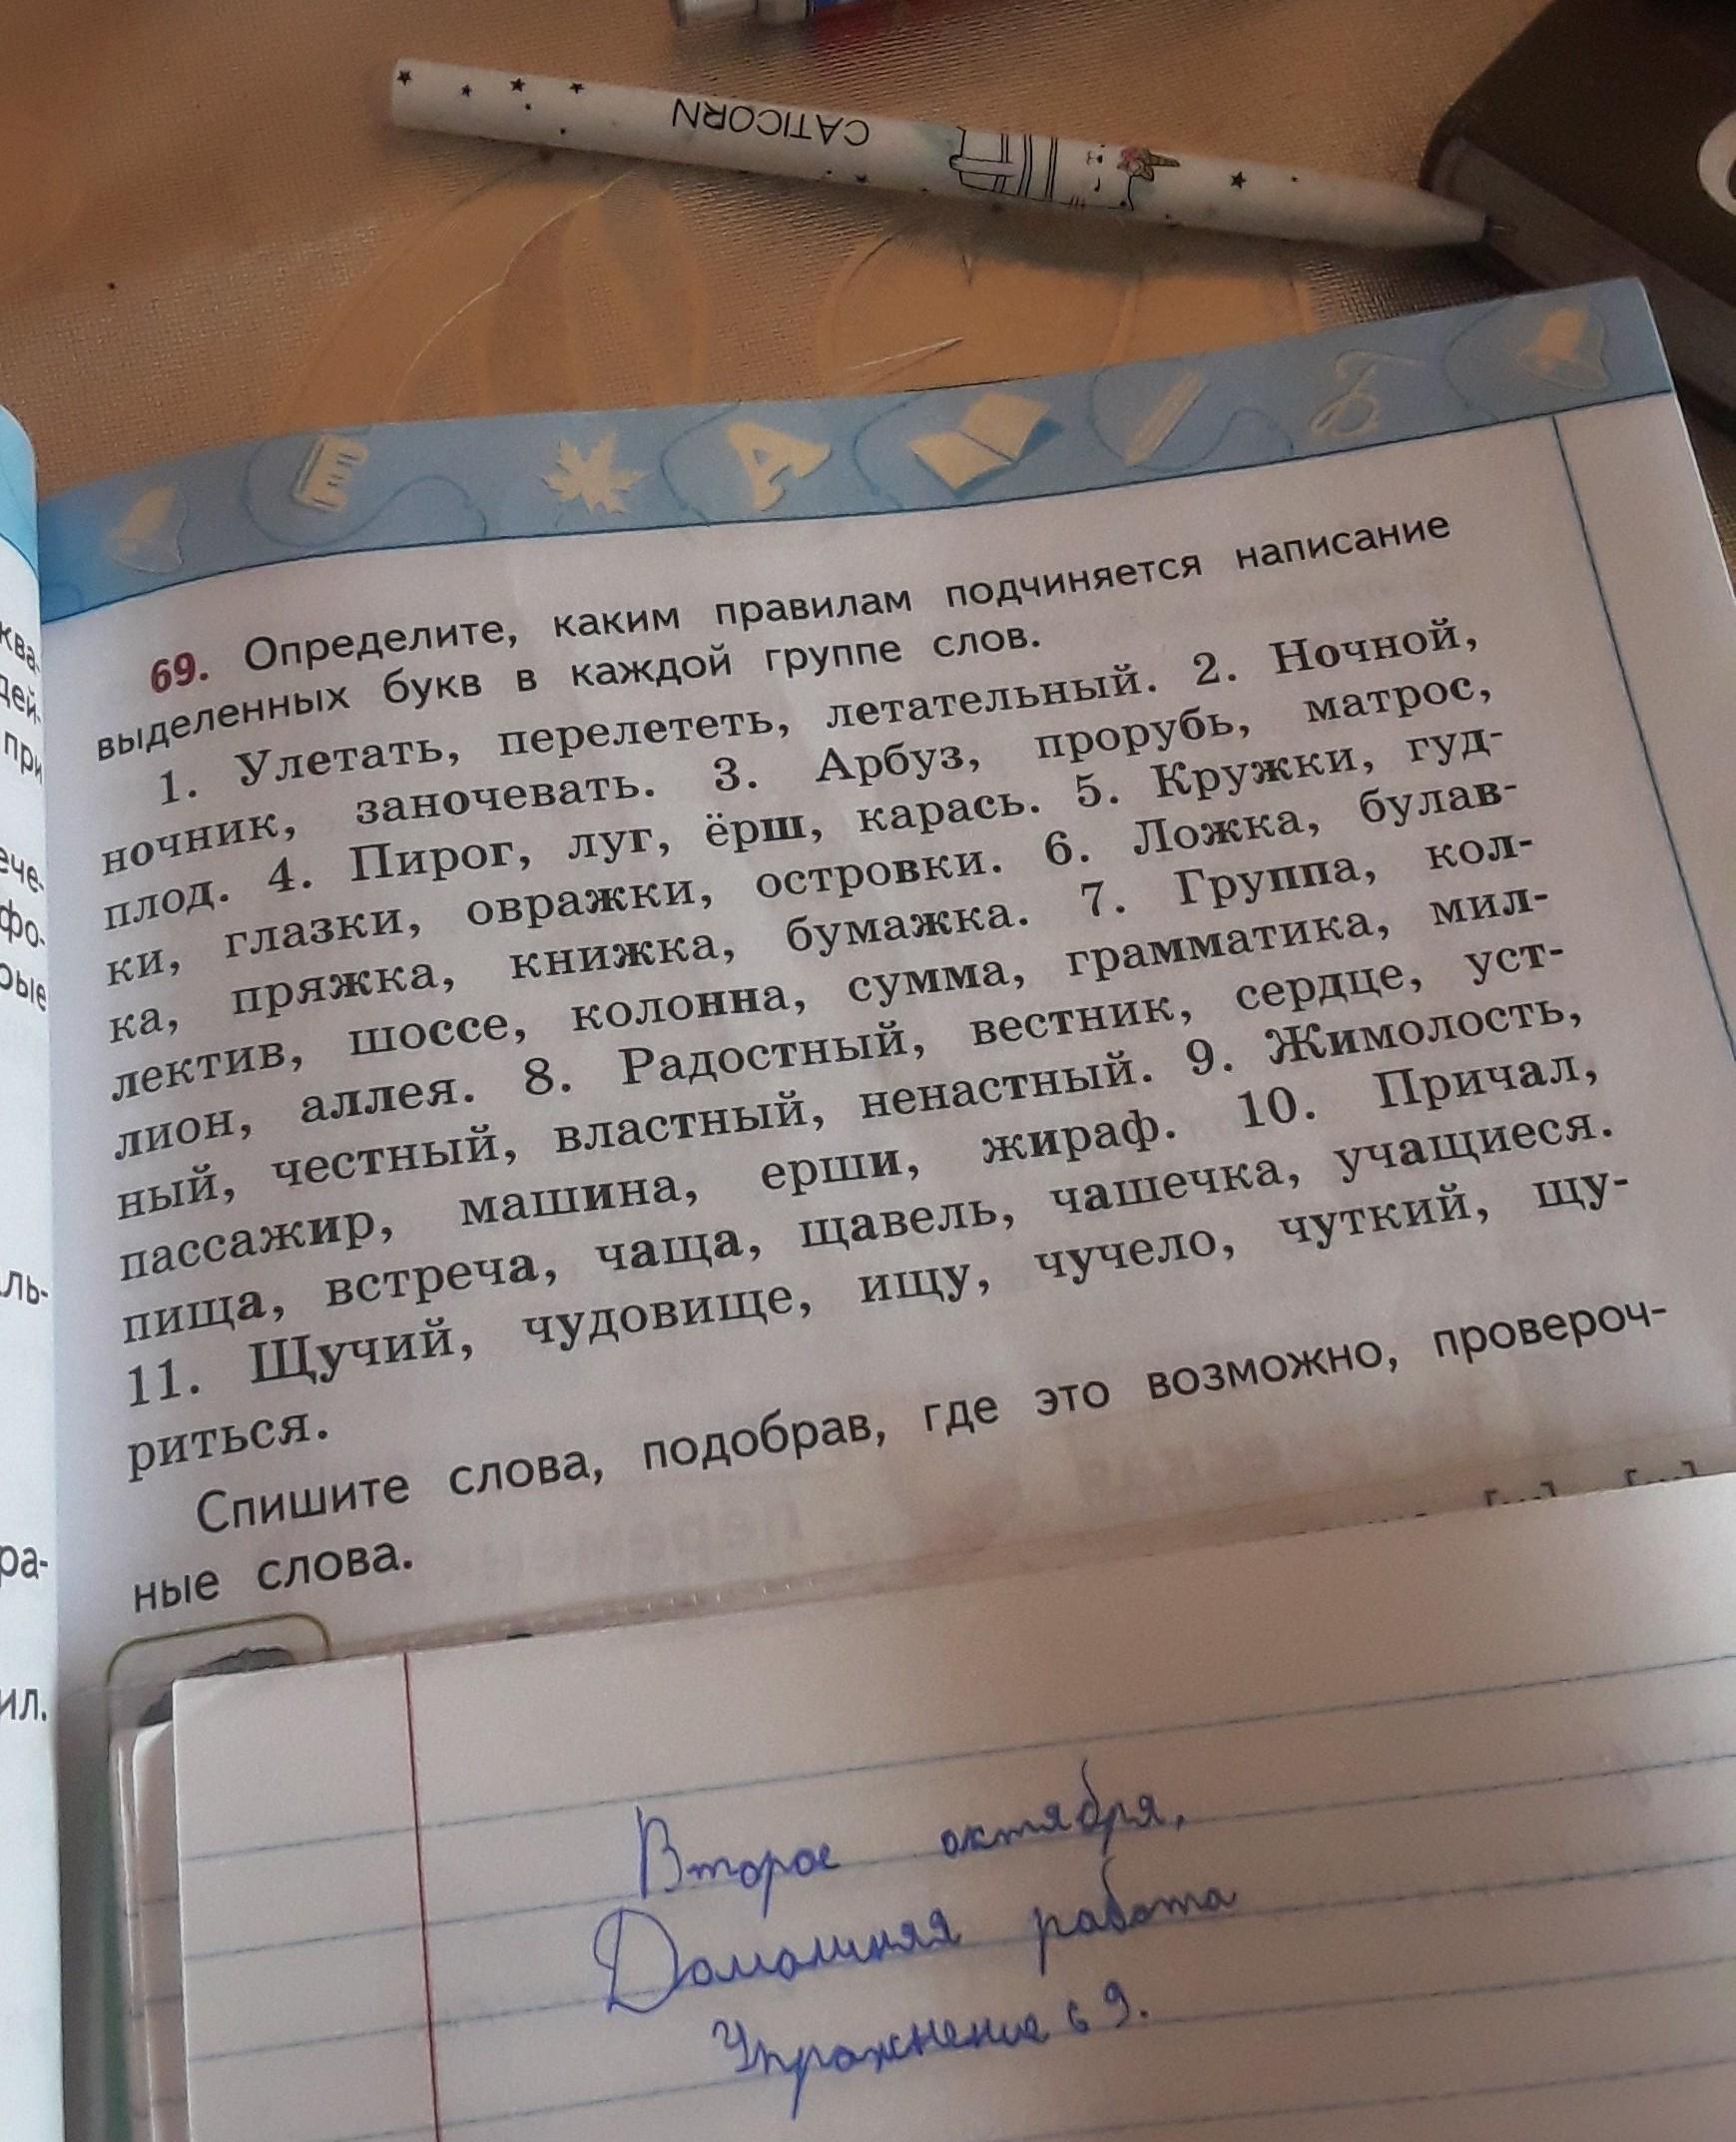 CATICORN
ква-
дей-
при
ече-
фо-
рые
ль-
ра-
ил.
69. Определите, каким правилам подчиняется написание
выделенных букв в каждой группе слов.
1. Улетать, перелететь, летательный. 2. Ночной,
ночник, заночевать. 3. Арбуз, прорубь, матрос,
плод. 4. Пирог, луг, ёрш, карась. 5. Кружки, гуд-
ки, глазки, овражки, островки. 6. Ложка, булав-
ка, пряжка, книжка, бумажка. 7. Группа, кол-
лектив, шоссе, колонна, сумма, грамматика, мил-
лион, аллея. 8. Радостный, вестник, сердце, уст-
ный, честный, властный, ненастный. 9. Жимолость,
пассажир, машина, ерши, жираф. 10. Причал,
пища, встреча, чаща, щавель, чашечка, учащиеся.
11. Щучий, чудовище, ищу, чучело, чуткий, щу-
риться.
Спишите слова, подобрав, где это возможно, провероч-
ные слова.
Второе октября,
Домашняя работа
Упражнение 69.